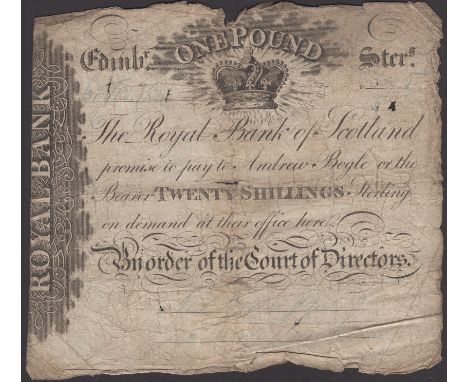 ONE POUND
Edinbr. Sters.
The Royal Bank of Scotland
promise to pay to Andrew Bogle or the
Bearer TWENTY SHILLINGS Sterling
on demand at their office here.
By order of the Court of Directors.
ROYAL BANK